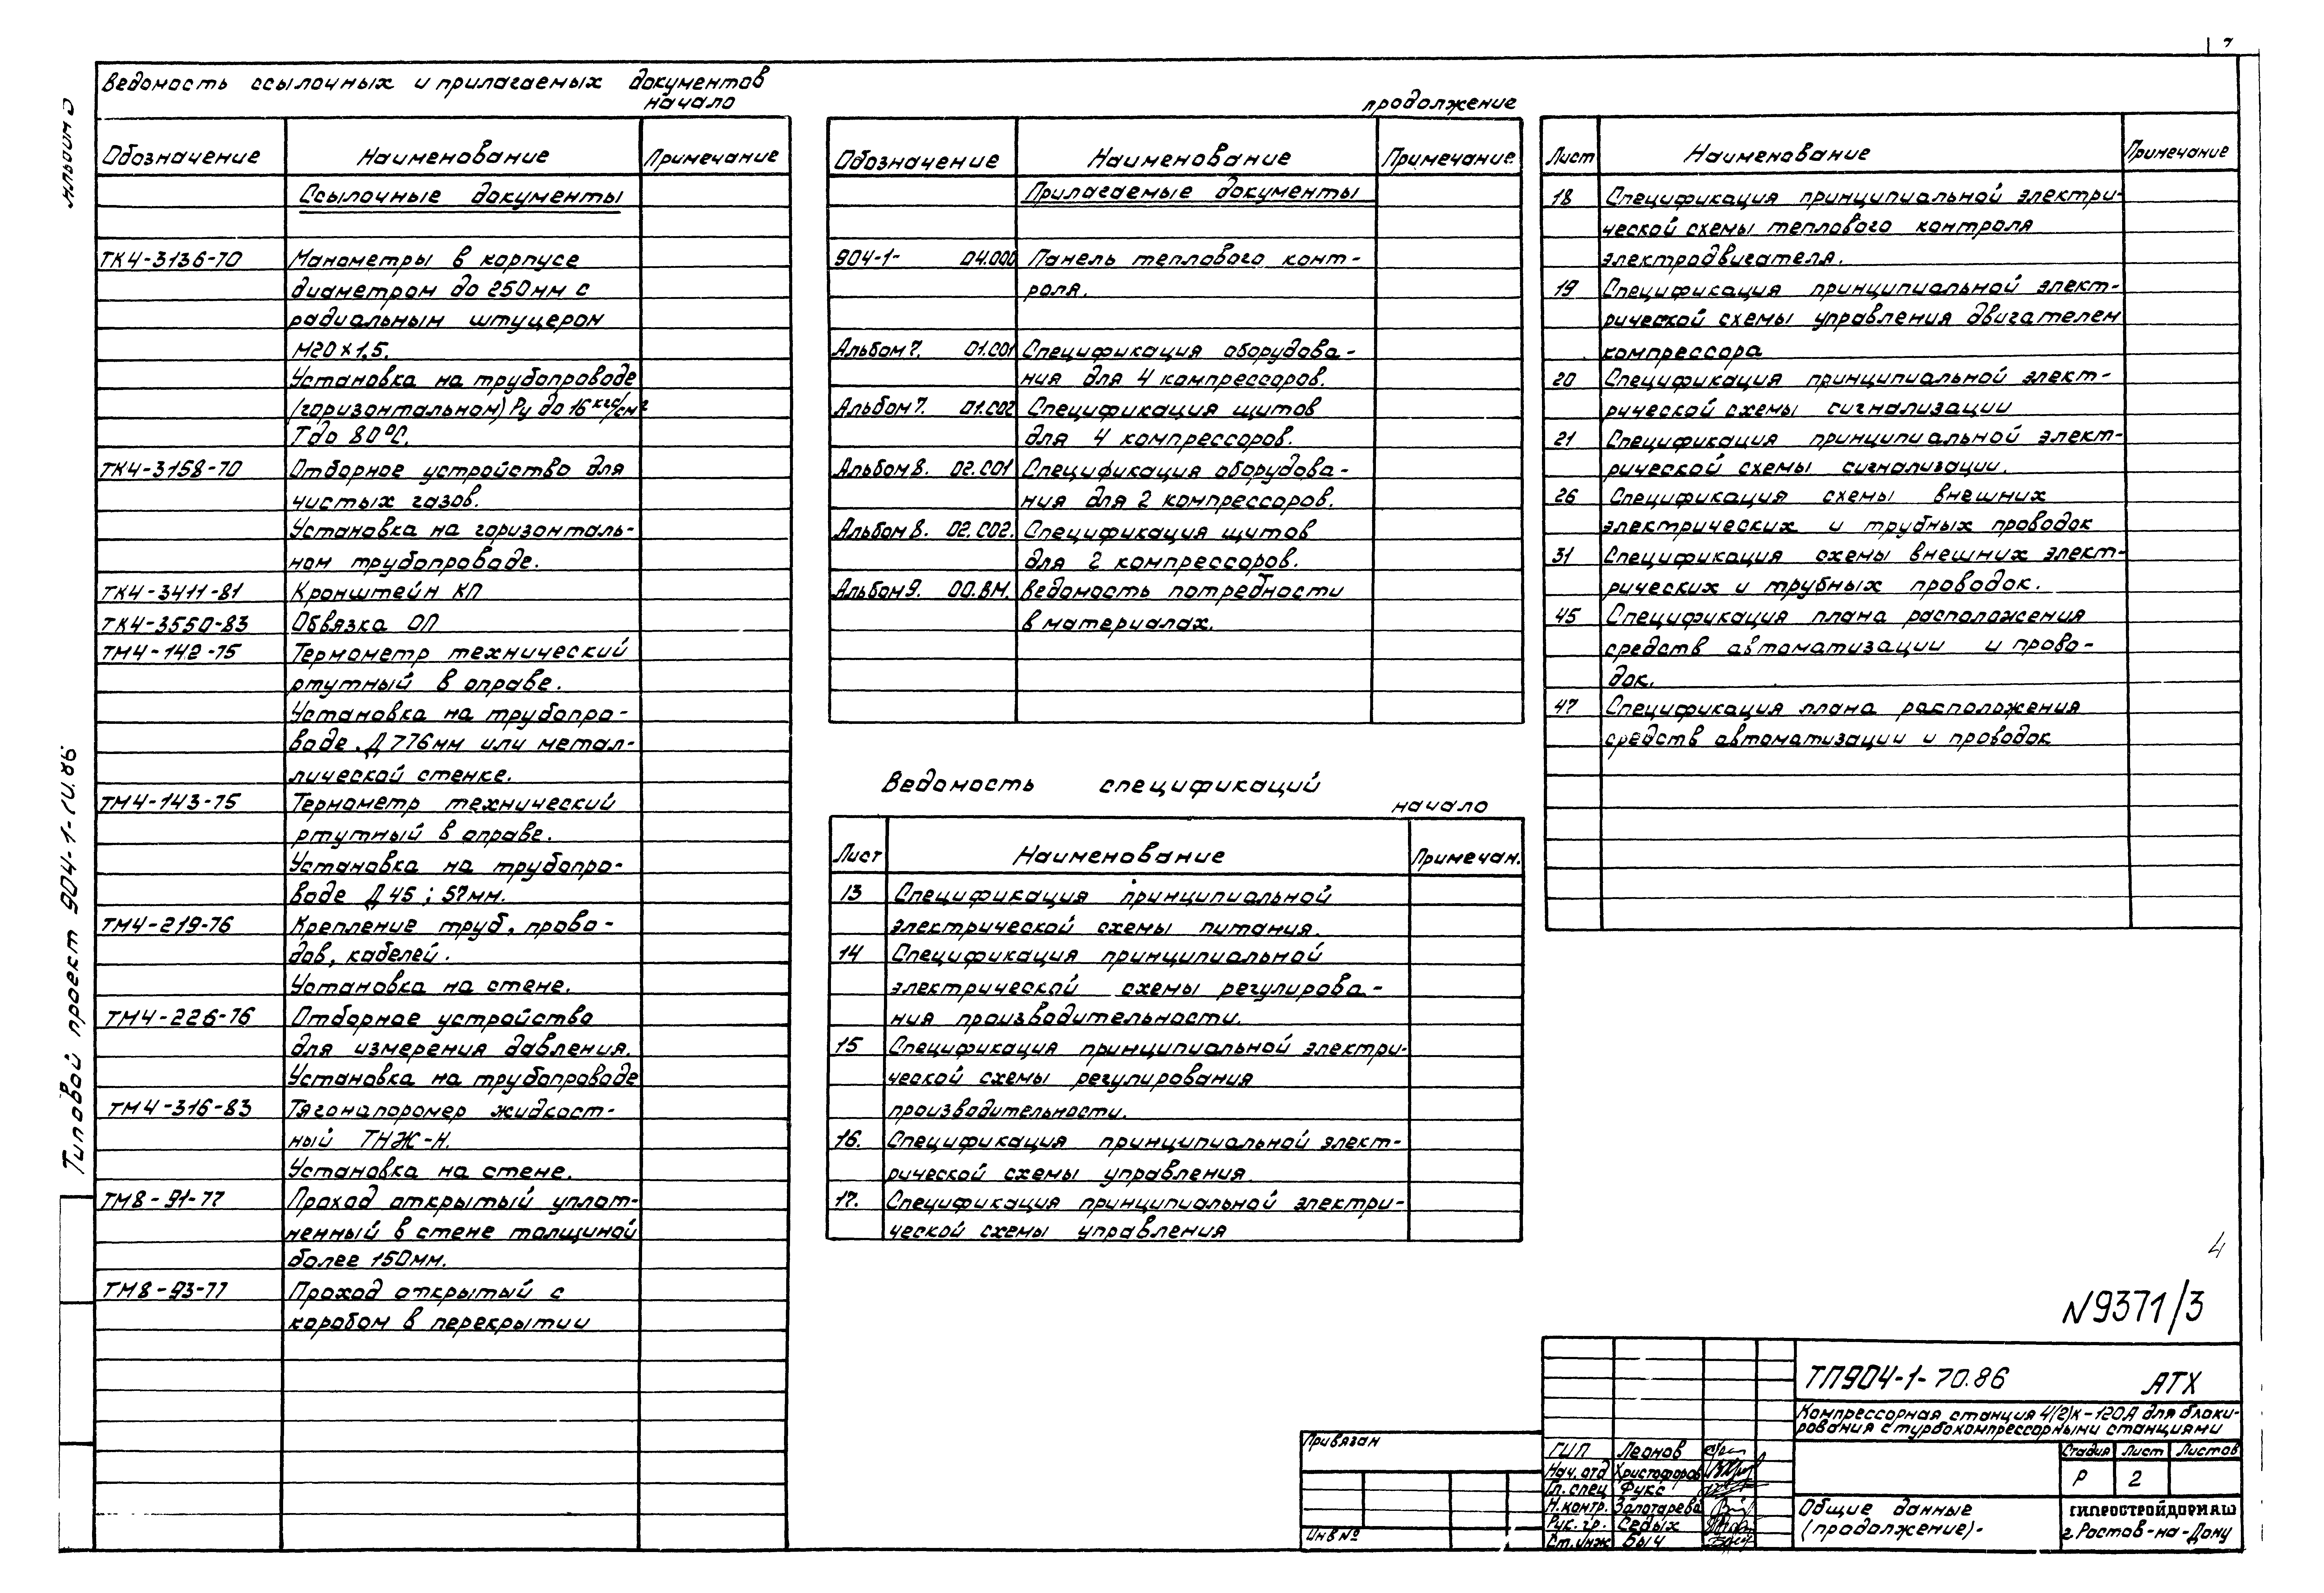 Ведомость ссылочных и прилагаемых документов
начало
Обозначение Наименование Примечание
Ссылочные документы
ТК4-3136-70 Манометры в корпусе
диаметром до 250мм с
радиальным штуцером
М20×1,5.
Установка на трубопроводе
(горизонтальном) Ру до 16 кгс/см²
Т до 80°С.
ТК4-3158-70 Отборное устройство для
чистых газов.
Установка на горизонталь-
ном трубопроводе.
ТК4-3411-81 Кронштейн КП
ТК4-3550-83 Обвязка ОП
ТМ4-142-75 Термометр технический
ртутный в оправе.
Установка на трубопро-
воде Д 776мм или метал-
лической стенке.
ТМ4-143-75 Термометр технический
ртутный в оправе.
Установка на трубопро-
воде Д 45; 57мм.
ТМ4-219-76 Крепление труб, прово-
дов, кабелей.
Установка на стене.
ТМ4-226-76 Отборное устройство
для измерения давления.
Установка на трубопроводе
ТМ4-316-83 Тягонапоромер жидкост-
ный ТНЖ-Н.
Установка на стене.
ТМ8-91-77 Проход открытый уплот-
ненный в стене толщиной
более 150мм.
ТМ8-93-77 Проход открытый с
коробом в перекрытии
продолжение
Обозначение Наименование Примечание
Прилагаемые документы
904-1- 04.000 Панель теплового конт-
роля.
Альбом 7. 01.С01 Спецификация оборудова-
ния для 4 компрессоров.
Альбом 7. 01.С02 Спецификация щитов
для 4 компрессоров.
Альбом 8. 02.С01 Спецификация оборудова-
ния для 2 компрессоров.
Альбом 8. 02.С02. Спецификация щитов
для 2 компрессоров.
Альбом 9. 00.ВМ. Ведомость потребности
в материалах.
Ведомость спецификаций
начало
Лист Наименование Примечан.
13 Спецификация принципиальной
электрической схемы питания.
14 Спецификация принципиальной
электрической схемы регулирова-
ния производительности.
15 Спецификация принципиальной электри-
ческой схемы регулирования
производительности.
16. Спецификация принципиальной элект-
рической схемы управления.
17. Спецификация принципиальной электри-
ческой схемы управления
Лист Наименование Примечание
18 Спецификация принципиальной электри-
ческой схемы теплового контроля
электродвигателя.
19 Спецификация принципиальной элект-
рической схемы управления двигателем
компрессора
20 Спецификация принципиальной элект-
рической схемы сигнализации
21 Спецификация принципиальной элект-
рической схемы сигнализации.
26 Спецификация схемы внешних
электрических и трубных проводок
31 Спецификация схемы внешних элект-
рических и трубных проводок.
45 Спецификация плана расположения
средств автоматизации и прово-
док.
47 Спецификация плана расположения
средств автоматизации и проводок
Альбом
Типовой проект 904-1-70.86
4
N9371/3
ТП904-1-70.86 АТХ
Компрессорная станция 4(2)К-120А для блоки-
рования с турбокомпрессорными станциями
Стадия Лист Листов
Р 2
Общие данные
(продолжение).
ГИПРОСТРОЙДОРМАШ
г. Ростов-на-Дону
Привязан
Инв №
ГИП Леонов
Нач. отд Христофоров
Гл. спец Фукс
Н. контр. Золотарева
Рук. гр. Седых
Ст. инж Быч